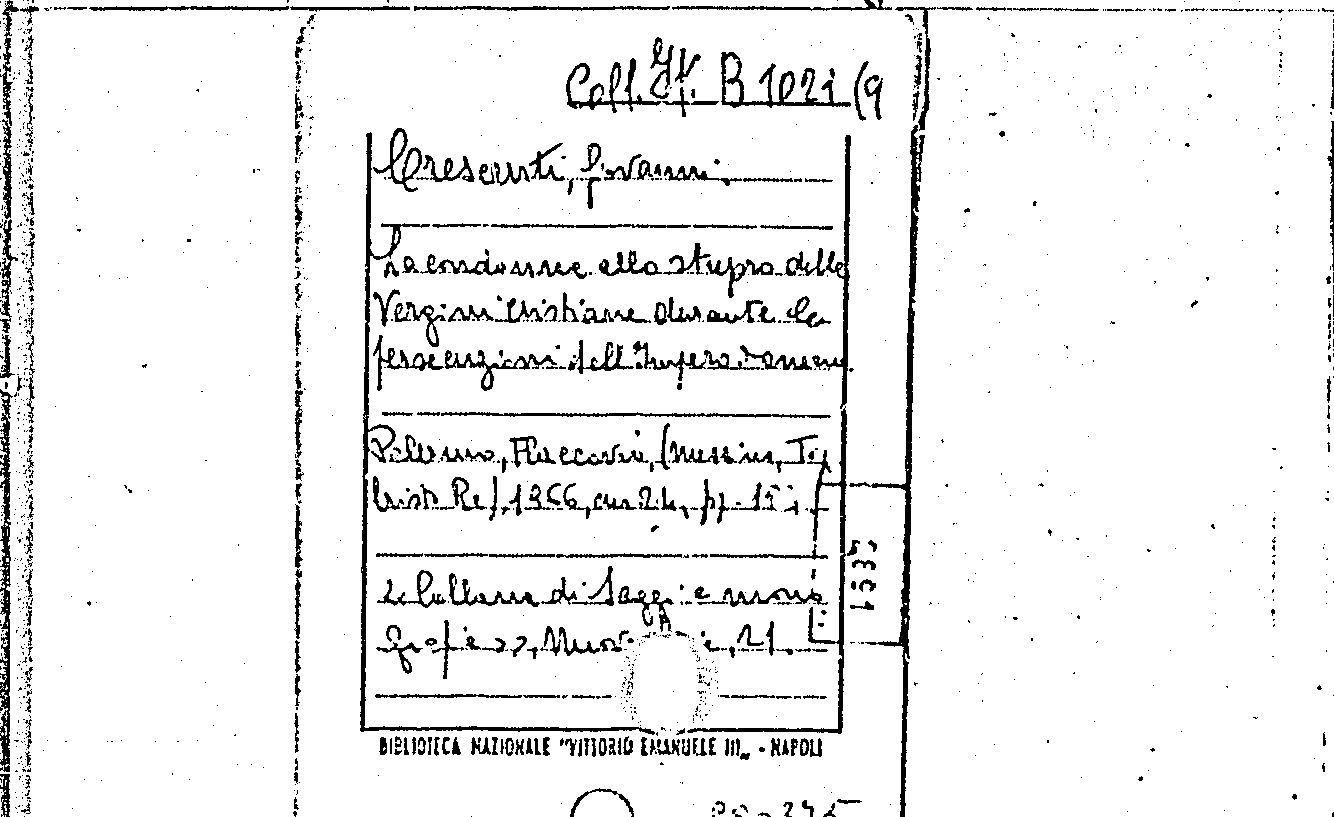 Coll. It. B 1021 (9
Crescenti, Giovanni.
La condanna allo stupro delle
Vergini Cristiane durante le
persecuzioni dell'Impero romano
Palermo, Flaccovio, (Messina, Tip.
Crist. Re), 1966, cm 24, pp.
«Collana di Saggi e mono
grafie», 21.
1335
BIBLIOTECA NAZIONALE "VITTORIO EMANUELE III„ - NAPOLI